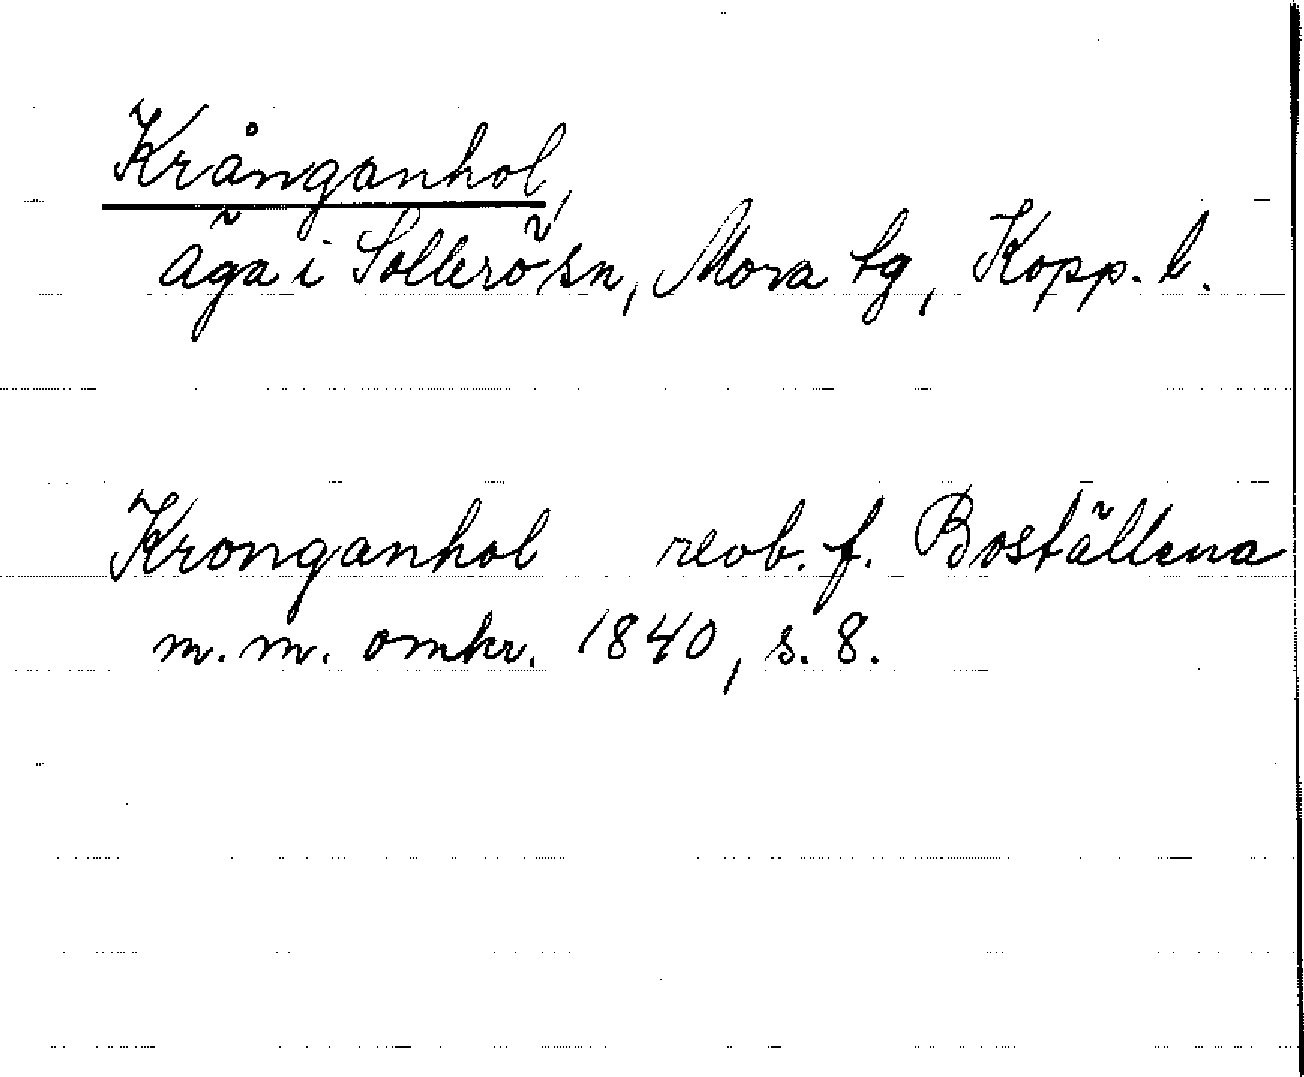 Krånganhol,
äga i Sollerö sn, Mora tg, Kopp. l.
Kronganhol revb. f. Boställena
m. m. omkr. 1840, s. 8.